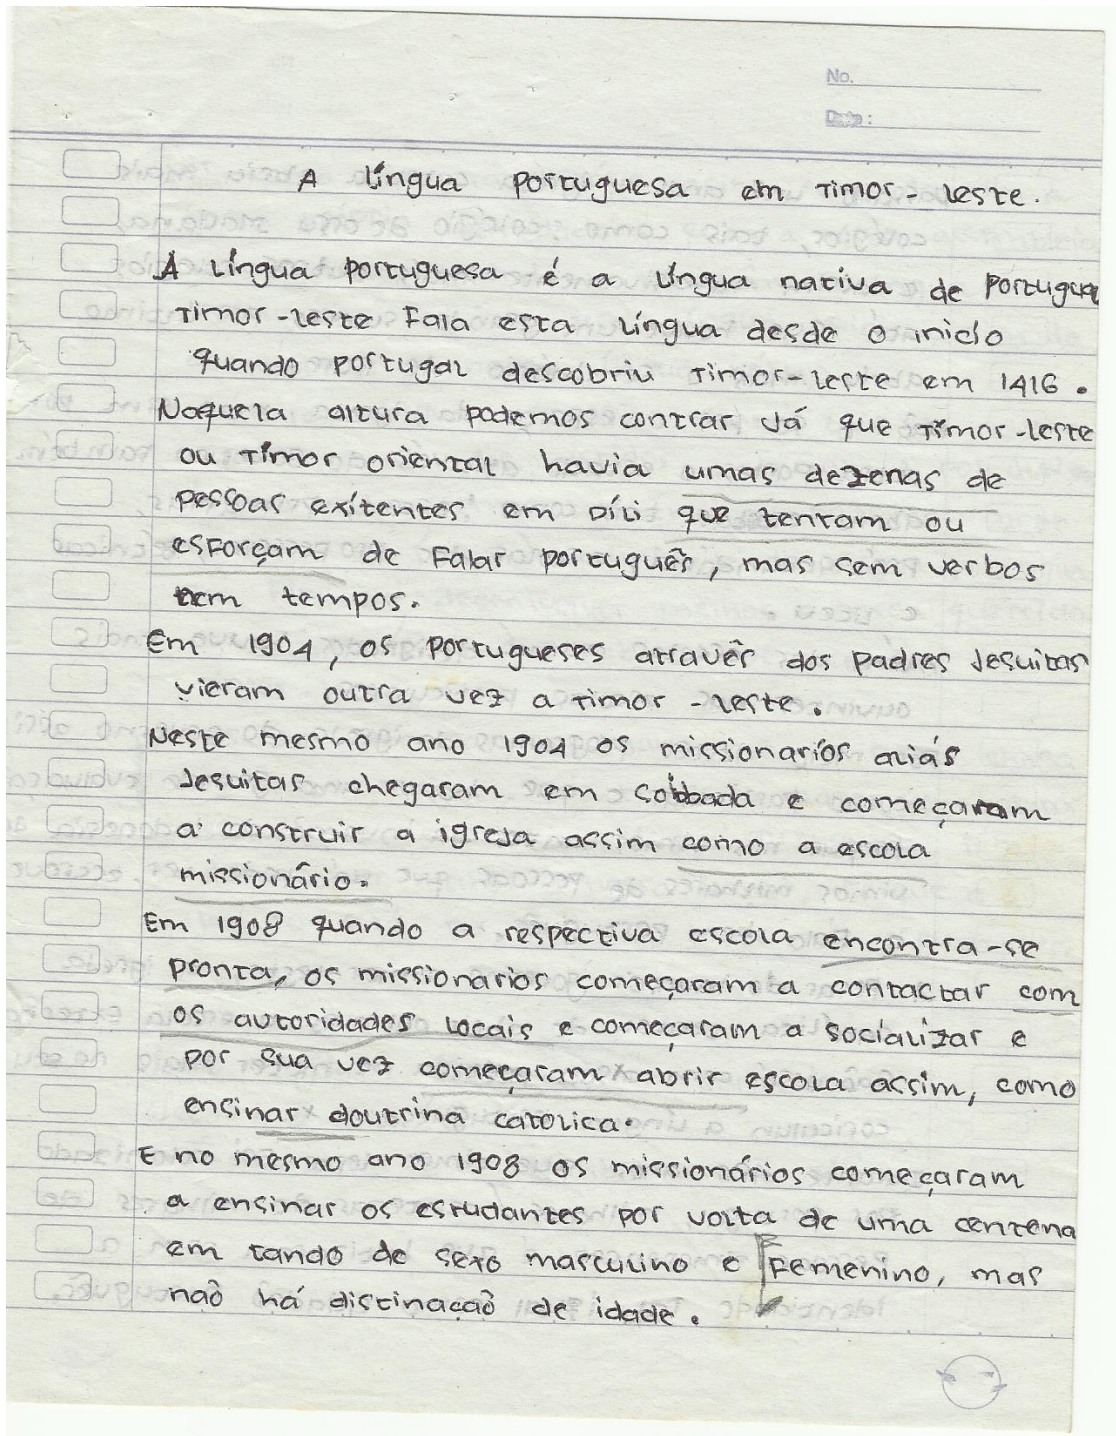 No.
Date :
A língua portuguesa em Timor-leste.
A língua portuguesa é a língua nativa de Portugal
Timor-leste Fala esta língua desde o inicío
quando portugal descobriu Timor-leste em 1416.
Naquela altura podemos contrar Já que Tímor-leste
ou Tímor oriental havia umas dezenas de
pessoas exítentes em Díli que tentam ou
esforçam de Falar português, mas sem verbos
nem tempos.
Em 1904, os portugueses atravês dos padres Jesuitas
vieram outra vez a timor-leste.
Neste mesmo ano 1904 os missionaríos aliás
Jesuitas chegaram em Soibada e começaram
a construir a igreja assim como a escola
missionário.
Em 1908 quando a respectiva escola encontra-se
pronta, os missionarios começaram a contactar com
os autoridades locais e começaram a socializar e
por sua vez começaram abrir escola assim, como
ensinar doutrina catolica.
E no mesmo ano 1908 os missionários começaram
a ensinar os estudantes por volta de uma centena
em tando de sexo masculino e Femenino, mas
naõ há distinaçaõ de idade.